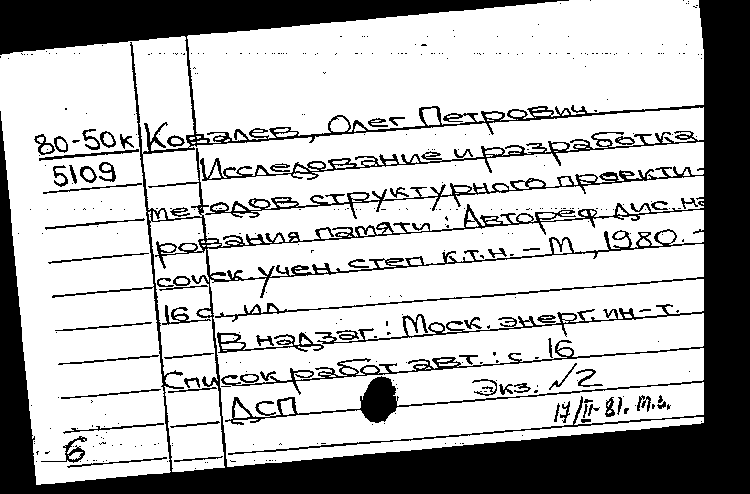 80-50к Ковалев, Олег Петрович.
5109 Исследование и разработка
методов структурного проекти-
рования памяти : Автореф. дис. на
соиск. учен. степ. к.т.н. – М., 1980. –
16 с., ил.
В надзаг. : Моск. энерг. ин-т.
Список работ авт. : с. 16
ДСП Экз. №2
17/II-81. т.з.
б